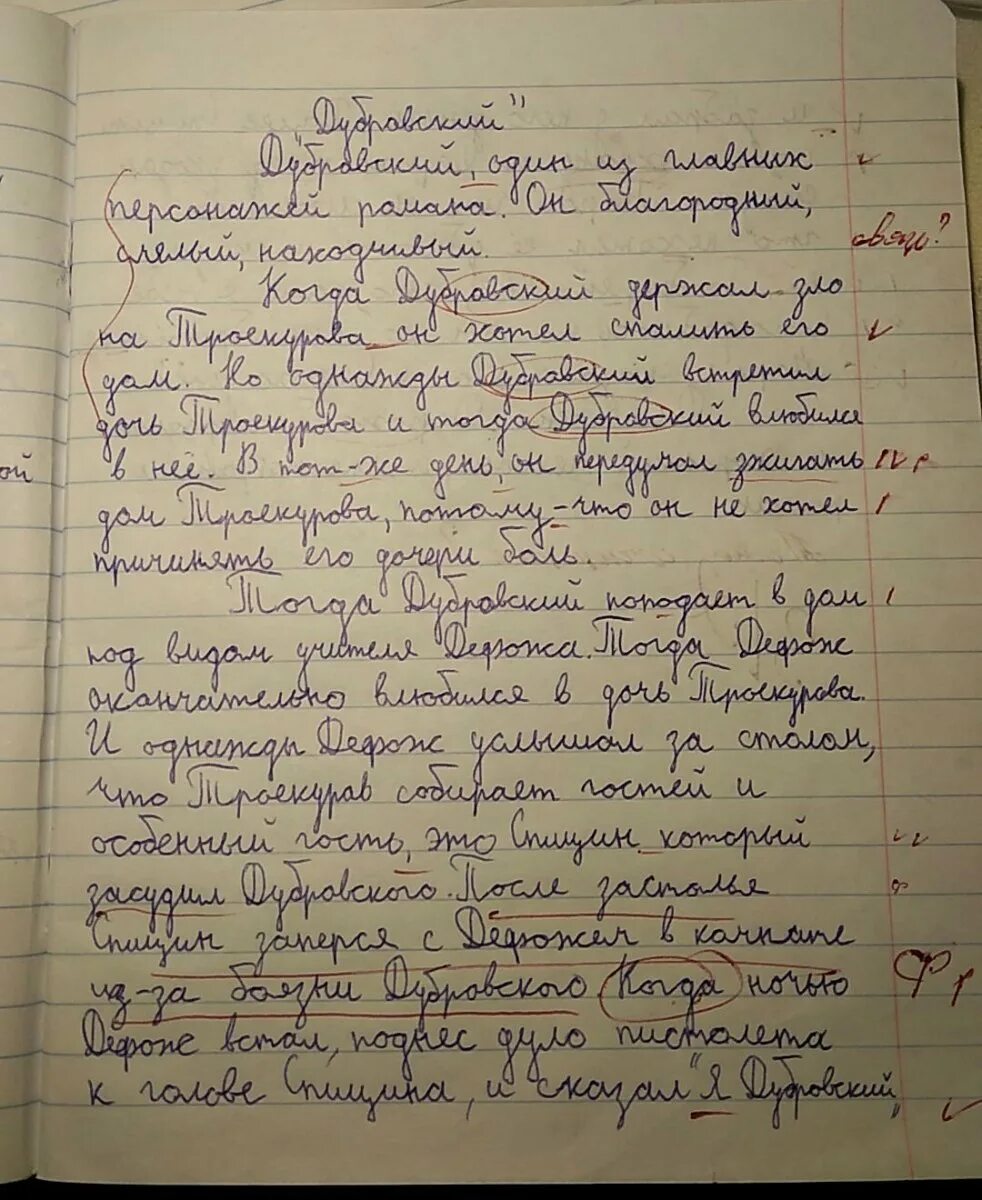 „Дубровский"
Дубровский, один из главних
персонажей романа. Он благородный,
смелый, находчивый.
связь?
Когда Дубровский держал зло
на Троекурова он хотел спалить его
дом. Но однажды Дубровский встретил
дочь Троекурова и тогда Дубровский влюбился
в неё. В тот-же день, он передумал зжигать
дом Троекурова, потому-что он не хотел
причинять его дочери боль.
Тогда Дубровский поподает в дом
под видом учителя Дефожа. Тогда Дефож
окончательно влюбился в дочь Троекурова.
И однажды Дефож услышал за столом,
что Троекуров собирает гостей и
особенный гость, это Спицин который
засудил Дубровского. После застолья
Спицин заперся с Дефожем в комнате
из-за боязни Дубровского Когда ночью
Дефож встал, поднес дуло пистолета
к голове Спицина, и сказал "Я Дубровский„
ой